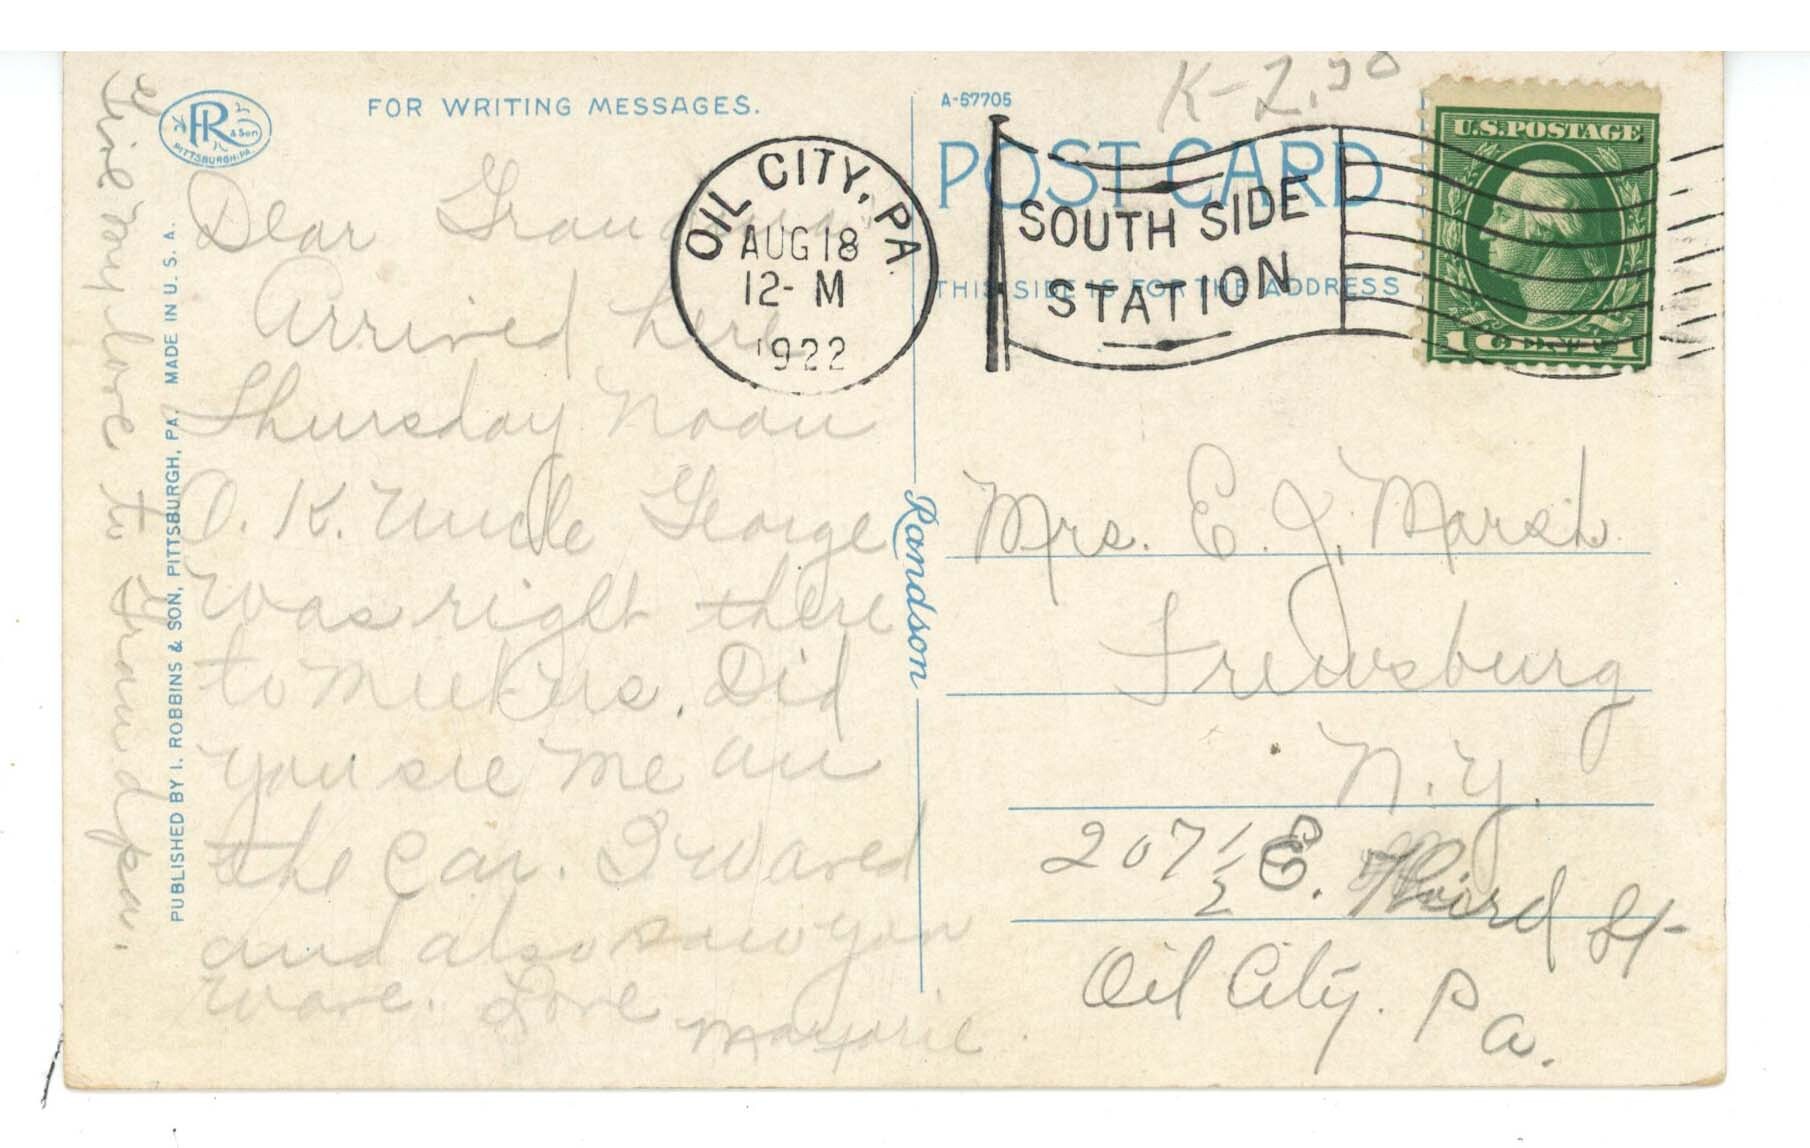 K-2.50
R
& Son
PITTSBURGH.PA.
FOR WRITING MESSAGES.
A-57705
POST CARD
THIS SIDE IS FOR THE ADDRESS
OIL CITY, PA.
AUG 18
12- M
1922
SOUTH SIDE
STATION
U.S. POSTAGE
1 CENT 1
Dear Grandma
Arrived here
Thursday noon
O.K. Uncle George
was right there
to meet us. Did
you see me on
the car. I waved
and also saw you
wave. Love
Marjorie
Give my love to Grandpa.
PUBLISHED BY I. ROBBINS & SON, PITTSBURGH, PA. MADE IN U. S. A.
Randson
Mrs. E. J. Marsh
Frewsburg
N.Y.
207 1/2 E. Third St
Oil City. Pa.